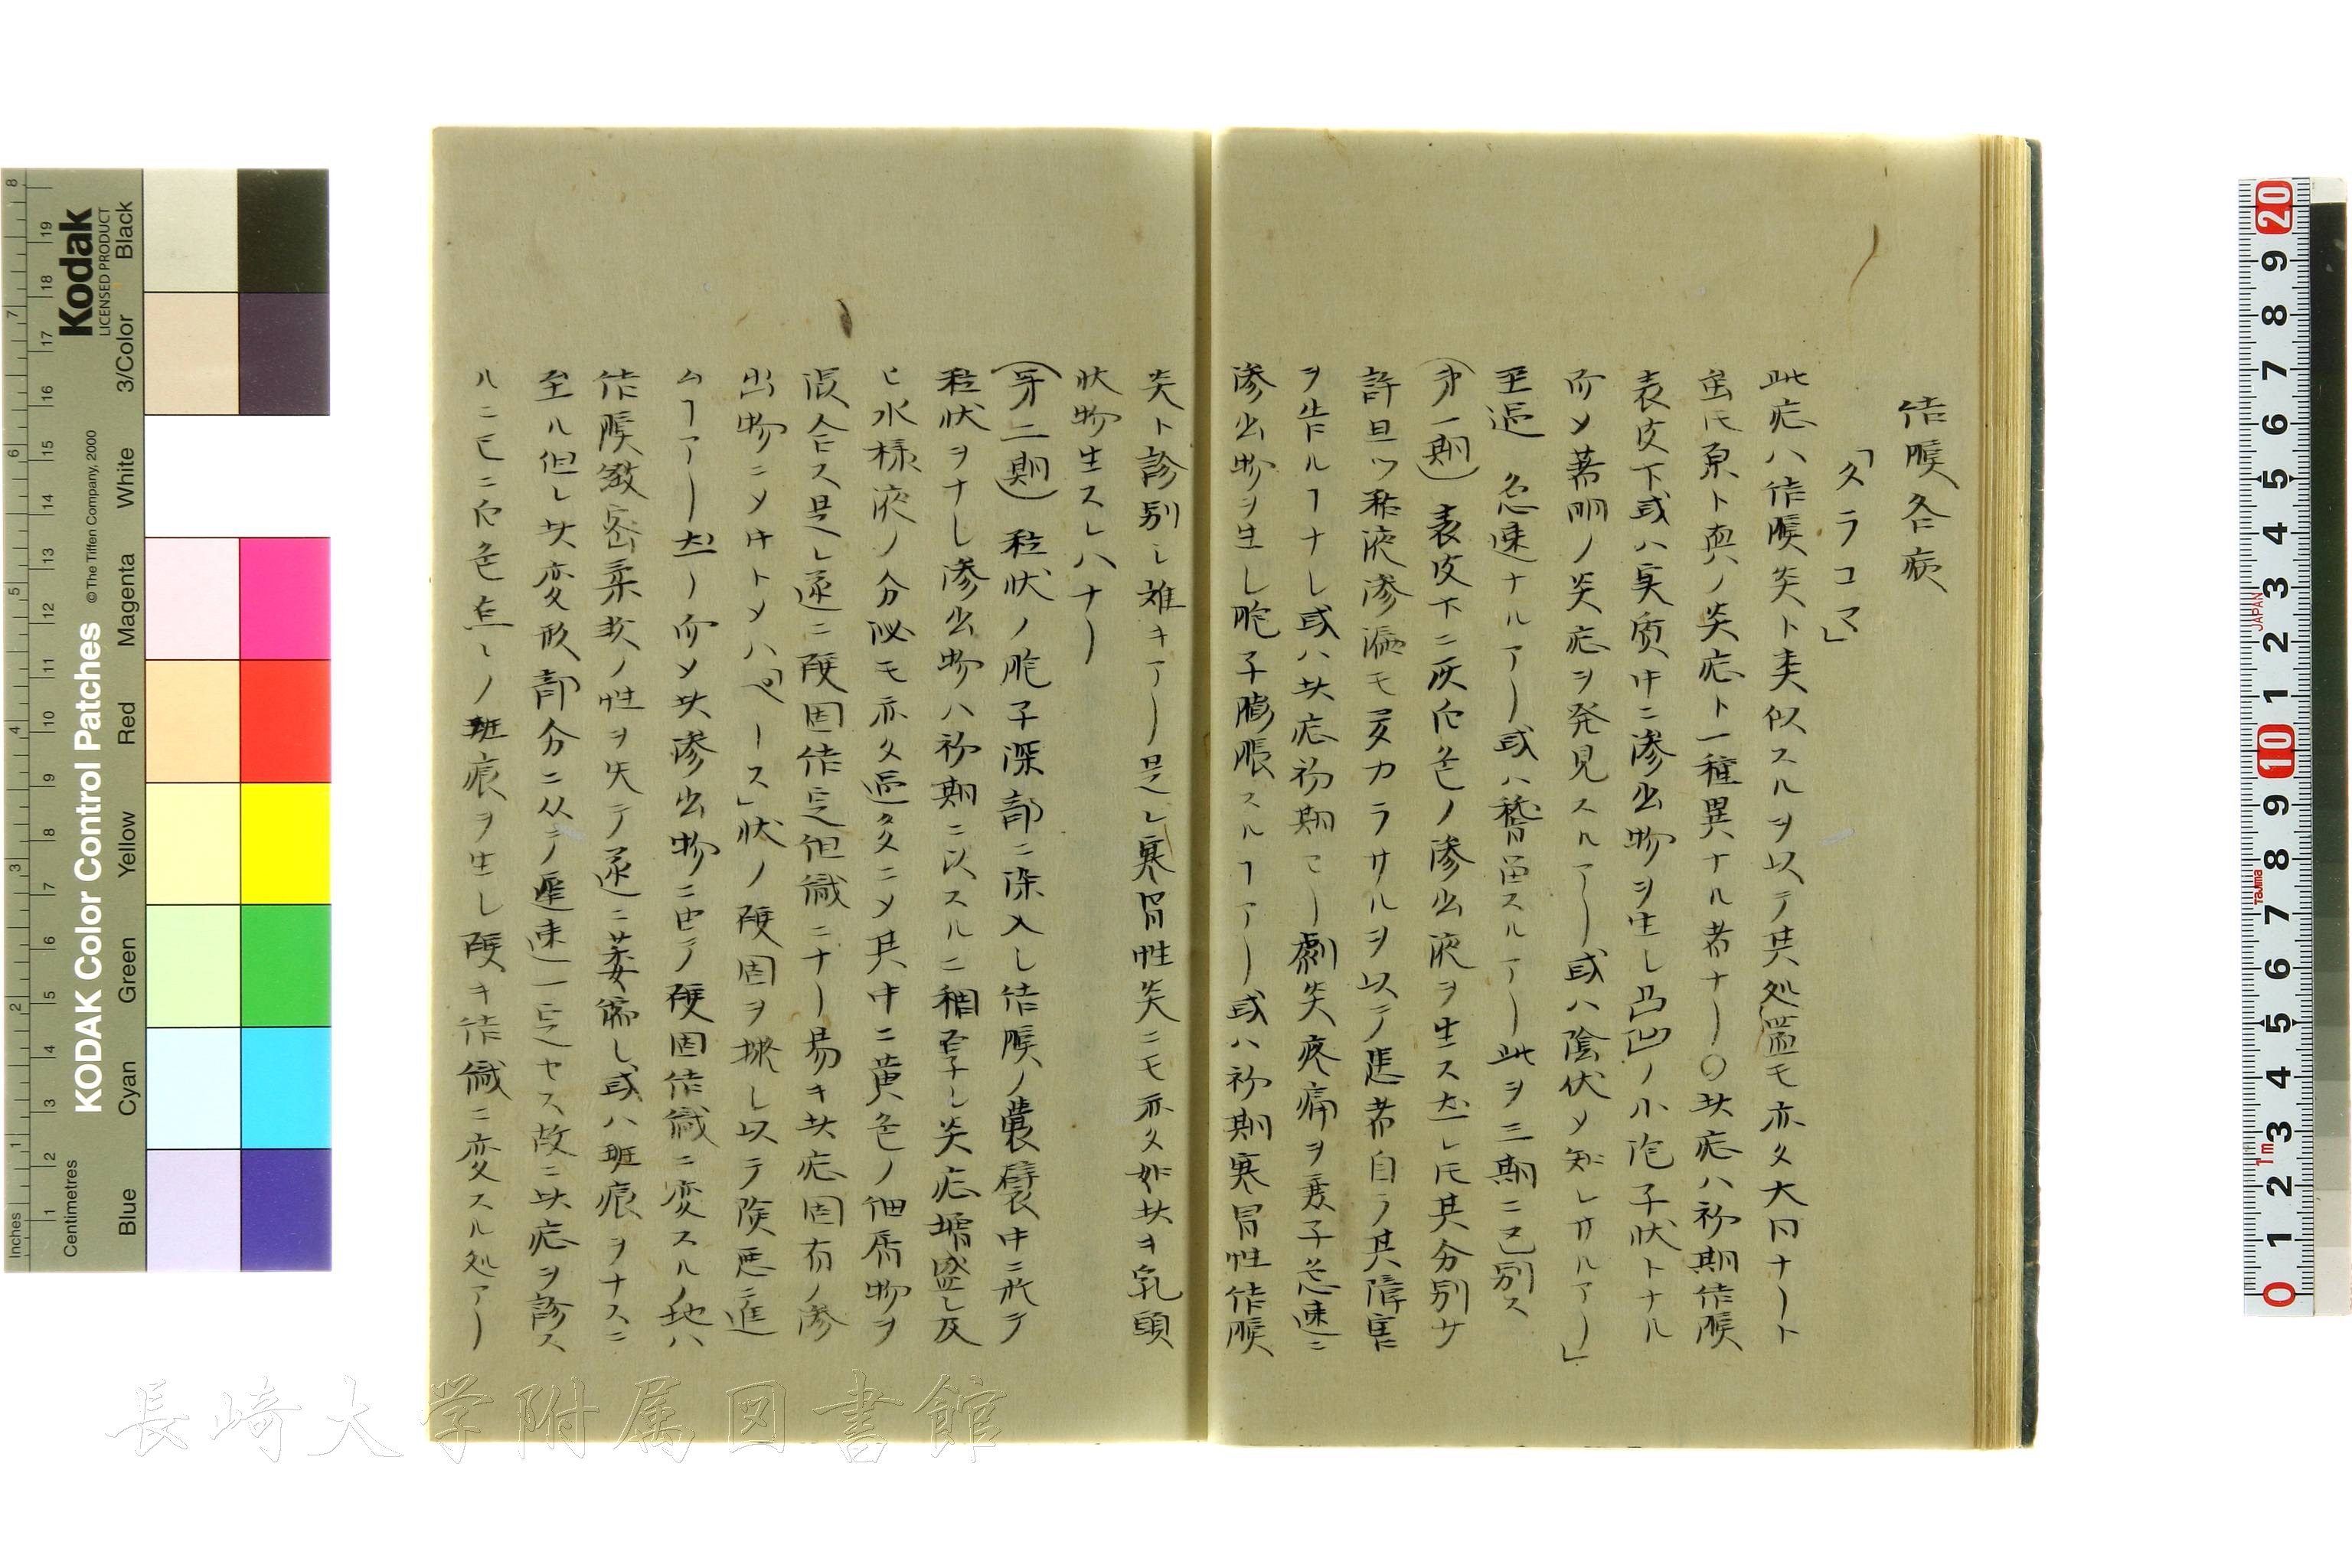 結膜各病
「タラコマ」
此症ハ結膜炎ト素似スルヲ以テ其処置モ亦タ大同ナリト
虽𪜈原ト真ノ炎症ト一種異ナル者ナリ〇此症ハ初期結膜
表皮下或ハ実质中ニ滲出物ヲ生シ凸凹ノ小胞子状トナル
而メ著明ノ炎症ヲ発見スルアリ或ハ陰伏メ知レサルアリ」
至逼 急速ナルアリ或ハ稽留スルアリ此ヲ三期ニ区別ス
(第一期) 表皮下ニ灰白色ノ滲出液ヲ生ス然レ𪜈其分別サ
許且ツ粘液滲漏モ夛カラサルヲ以テ患者自ラ其障害
ヲ告ルヿナシ或ハ此症初期ヨリ劇炎疼痛ヲ裹子急速ニ
滲出物ヲ生シ胞子膨脹スルヿアリ或ハ初期寒冒性結膜
炎ト診别シ难キアリ是レ寒冒性炎ニモ亦タ如此キ乳頭
状物生スレハナリ
(第二期) 粒状ノ胞子深部ニ深入シ結膜ノ囊襞中ニ於テ
粒状ヲナシ滲出物ハ初期ニ以スルニ稠厚シ炎症増盛シ及
ヒ水様液ノ分泌モ亦タ逼多ニメ其中ニ黄色ノ細屑物ヲ
混合ス是レ遂ニ硬固結定組織ニナリ易キ此症固有ノ滲
出物ニメ中トメハ「ペース」状ノ硬固ヲ挾シ以テ険悪ニ進
ムヿアリ然リ而メ此滲出物ニ由テ硬固結織ニ変スルノ地ハ
結膜緻密柔软ノ性ヲ失テ遂ニ萎縮シ或ハ斑痕ヲナスニ
至ル但シ此変形部分ニ从テ遲速一定セス故ニ此症ヲ診ス
ルニ已ニ白色点々ノ斑痕ヲ生シ硬キ結織ニ変スル処アリ
長崎大学附属図書館
Kodak
LICENSED PRODUCT
KODAK Color Control Patches
© The Tiffen Company, 2000
Inches
Centimetres
Blue
Cyan
Green
Yellow
Red
Magenta
White
3/Color
Black
JAPAN
Tajima
1m